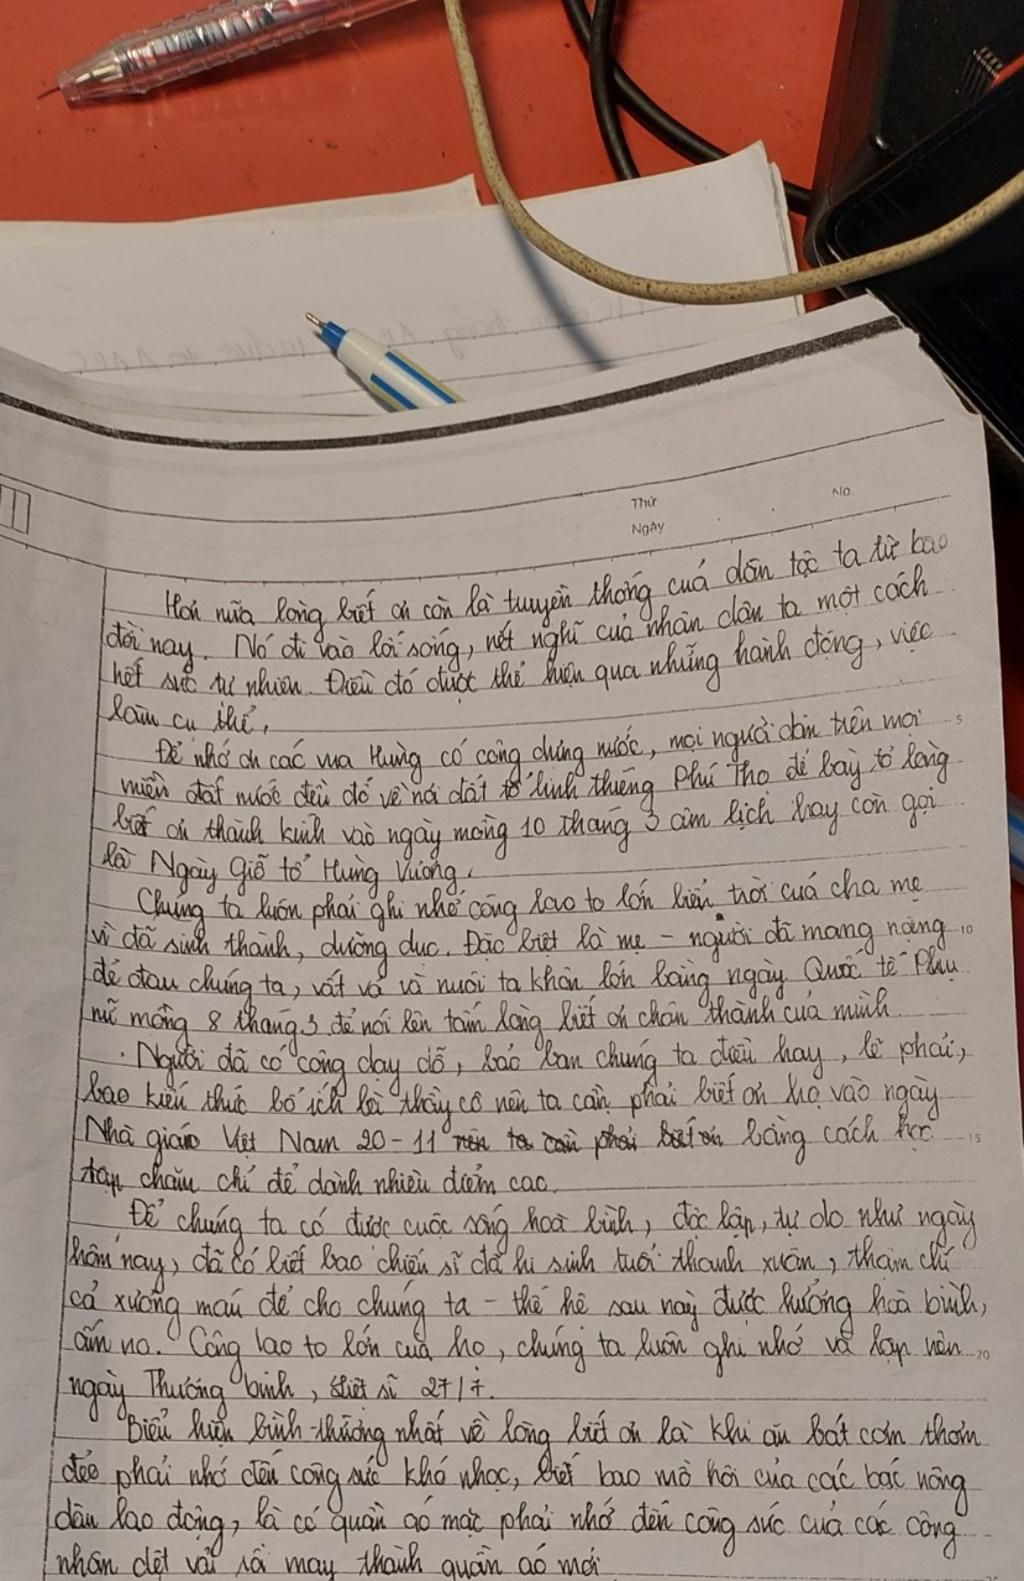 Thứ No.
Ngày
Hơn nữa lòng biết ơn còn là truyền thống cuả dân tộc ta từ bao
đời nay. Nó đi vào lối sống, nét nghĩ của nhân dân ta một cách
hết sức tự nhiên. Điều đó được thể hiện qua những hành động, việc
làm cụ thể.
Để nhớ ơn các vua Hùng có công dựng nước, mọi người dân trên mọi 5
miền đất nước đều đổ về nơi đất tổ linh thiêng Phú Thọ để bày tỏ lòng
biết ơn thành kính vào ngày mồng 10 tháng 3 âm lịch hay còn gọi
là Ngày Giỗ tổ Hùng Vương.
Chúng ta luôn phải ghi nhớ công lao to lớn biển trời cuả cha mẹ
vì đã sinh thành, dưỡng dục. Đặc biệt là mẹ - người đã mang nặng 10
đẻ đau chúng ta, vất vả và nuôi ta khôn lớn bằng ngày Quốc tế Phụ
nữ mồng 8 tháng 3 để nói lên tấm lòng biết ơn chân thành của mình.
Người đã có công dạy dỗ, bảo ban chúng ta điều hay, lẽ phải,
bao kiến thức bổ ích là thầy cô nên ta cần phải biết ơn họ vào ngày
Nhà giáo Việt Nam 20-11 nên ta cần phải biết ơn bằng cách học 15
tập chăm chỉ để dành nhiều điểm cao.
Để chúng ta có được cuộc sống hoà bình, độc lập, tự do như ngày
hôm nay, đã có biết bao chiến sĩ đã hi sinh tuổi thanh xuân, thậm chí
cả xương máu để cho chúng ta - thế hệ sau này được hưởng hoà bình,
ấm no. Công lao to lớn của họ, chúng ta luôn ghi nhớ và lập nên 20
ngày Thương binh, liệt sĩ 27/7.
Biểu hiện bình thường nhất về lòng biết ơn là khi ăn bát cơm thơm
dẻo phải nhớ đến công sức khó nhọc, biết bao mồ hôi của các bác nông
dân lao động, là có quần áo mặc phải nhớ đến công sức cuả các công
nhân dệt vải rồi may thành quần áo mới